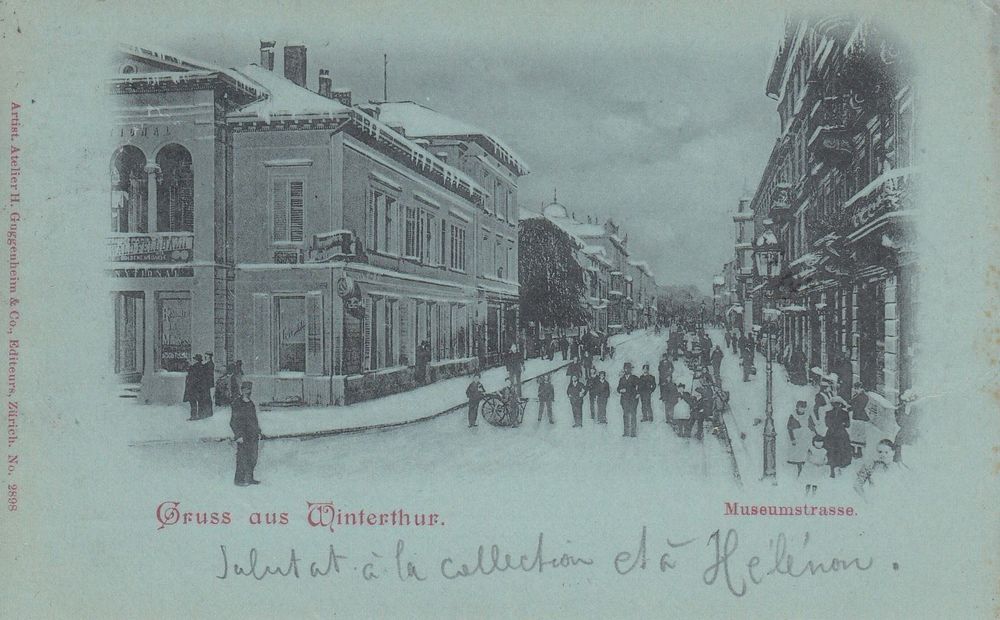 Artist. Atelier H. Guggenheim & Co., Editeurs, Zürich. No. 2898
Gruss aus Winterthur.
Museumstrasse.
Salutat à la collection et à Hélénon.